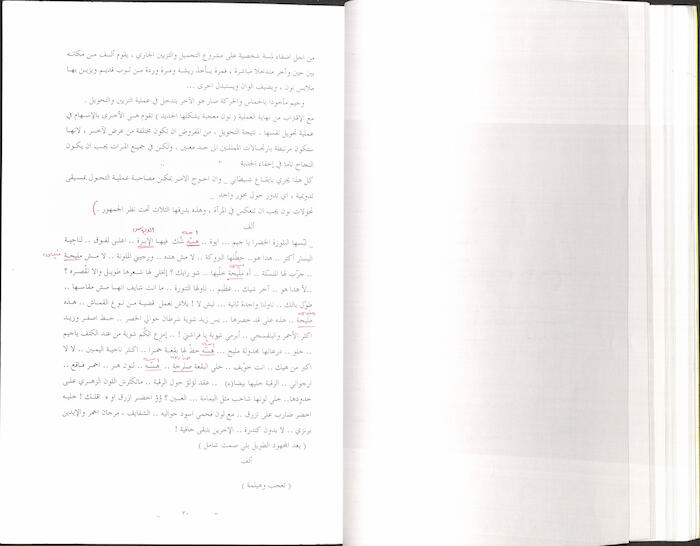 من اجل اضفاء لمسة شخصية على مشروع التجميل والتزيين الجاري ، يقوم ألـف مـن مكانـه
بين حين وآخر متدخلا مباشرة ، فمرة يـأخذ ريشة ومـرة وردة مـن ثـوب قديـم ويزيـن بهـا
ملابس نون ، ويضيف الوان ويستبدل اخرى ...
وجيم مأخوذ بالحماس والحركة صار هو الآخر يتدخل في عملية التزيين والتحويل .
مع الاقتراب من نهاية العملية ( نون معجبة بشكلها الجديد ) تقوم هـي الأخـرى بالاسـهام في
عملية تحويل نفسها . نتيجة التحويل ، من المفروض ان تكون مختلفة من عرض لآخـر ، لانهـا
ستكون مرتبطة بارتجـالات الممثلين الى حـد معـين . ولكـن في جميـع المـرات يجـب ان يكـون
النجاح تاما في إخفاء الجدية
كل هذا يجري بايقـاع شـيطاني _ وان احـوج الامـر يمكـن مصاحبـة عمليـة التحـول بموسيقى
تدويمية ، اي تدور حول محور واحد _
تحولات نون يجب ان تنعكس في المرآة ، وهذه بدرفها الثلاث تحت نظر الجمهور . )
ألف
_ لبّسها البلوزة الخضرا يا جيم ... ايوة .. هنـّه شك فيهـا الإبـرة .. اعلـى لفـوق .. لناحيـة
اليسار أكثر .. هدا هو.. حطّلها البروكة .. لا مش هـده .. ورجيني الملونة .. لا مـش مليحـة
.. جرّب لها المنسّلة .. أه مليحة خليها .. شو رايك ؟ إتخلي لها شعرها طويـل والا تقصّره ؟
..لأ هدا هو .. آخر شيك .. عظيم .. ناولها التنورة .. ما انت شايف انهـا مـش مقاسـها ..
طوّل بالك .. ناولنا واحدة ثانية ... ليش لا ! بلاش نعمل قضيـة مـن نـوع القمـاش .. هـده
مليحة .. هده على قد خصرها .. بس زيد شوية شرطان حوالي الخصر .. حـط اصفـر وزيـد
اكثر الأحمر والبنفسجي .. أبرمي شوية يا فراشتي ! .. إمزع الكُم شوية من عند الكتف ياجيم
.. حلو .. درعاتها مجدولة مليح ... هنـّه حط لها بقعة حمـرا .. اكثر ناحيـة اليمـين .. لا لا
اكبر من هيك .. انت خوّيف .. خلي البقعة صارخة .. هنـّه .. لـون هـر .. احمـر فـاقع ..
ارجواني .. الرقبة خليها بيضا(ء) .. عقد لؤلؤ حول الرقبة .. ماتكترش اللون الزهـري علـى
خدودها.. خلي لونها شاحب مثل اليمامة ... العـين ؟
اخضر ضارب على ازرق .. مع لون فحمي اسود حواليه .. الشفايف ، مرجان احمر والايدين
برنزي .. لا بدون كندرة .. الإجرين بتبقى حافية !
( بعد المجهود الطويل يلي صمت شامل )
ألف
( تعجب وهيلمة )
٢٠